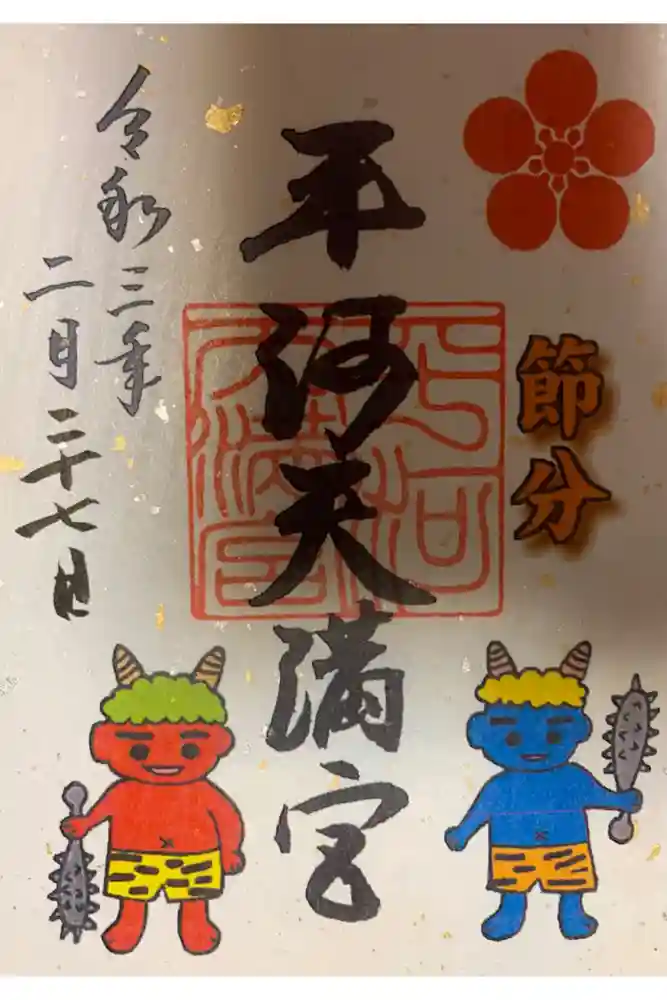 節分
平河天満宮
平河
天満宮
令和三年
二月二十七日